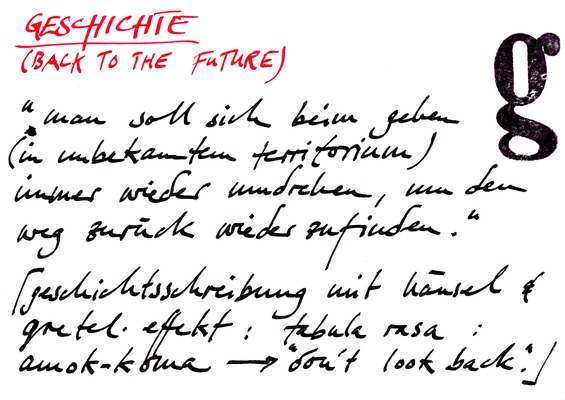 GESCHICHTE
(BACK TO THE FUTURE)
g
"man soll sich beim gehen
(in unbekanntem territorium)
immer wieder umdrehen, um den
weg zurück wiederzufinden."
[geschichtsschreibung mit hänsel &
gretel-effekt: tabula rasa:
amok-koma → "don't look back".]